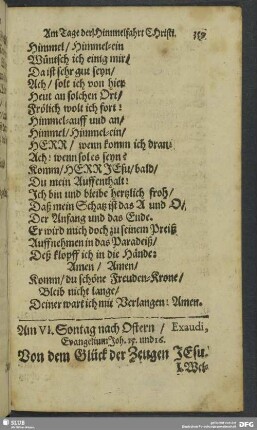 Am Tage der Himmelfahrt CHristi.
Himmel/ Himmel-ein
Wüntsch ich einig mir/
Da ist sehr gut seyn/
Ach/ solt ich von hier
Heut an solchen Ort/
Frölich wolt ich fort!
Himmel-auff und an/
Himmel/ Himmel-ein/
HERR/ wenn komm ich dran?
Ach! wenn sol es seyn?
Komm/ HERR JEsu/ bald/
Du mein Auffenthalt!
Ich bin und bleibe hertzlich froh/
Daß mein Schatz ist das A und O/
Der Anfang und das Ende.
Er wird mich doch zu seinem Preiß
Auffnehmen in das Paradeiß/
Deß klopff ich in die Hände:
Amen/ Amen/
Komm/ du schöne Freuden-Krone/
Bleib nicht lange/
Deiner wart ich mit Verlangen! Amen.
Am VI. Sontag nach Ostern/ Exaudi,
Evangelium Joh. 15. und 16.
Von dem Glück der Zeugen JEsu.
SLUB